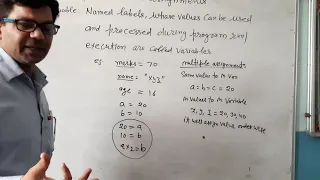 Named labels, whose values can be used
and processed during program run/
execution are called variables
eg. marks = 70
name = "xyz"
age = 16
a = 20
b = 10
20 = a
10 = b
multiple assignments
Same value to M var
a = b = c = 20
M values to M Variable
x, y, z = 20, 30, 40
it will assign value order wise